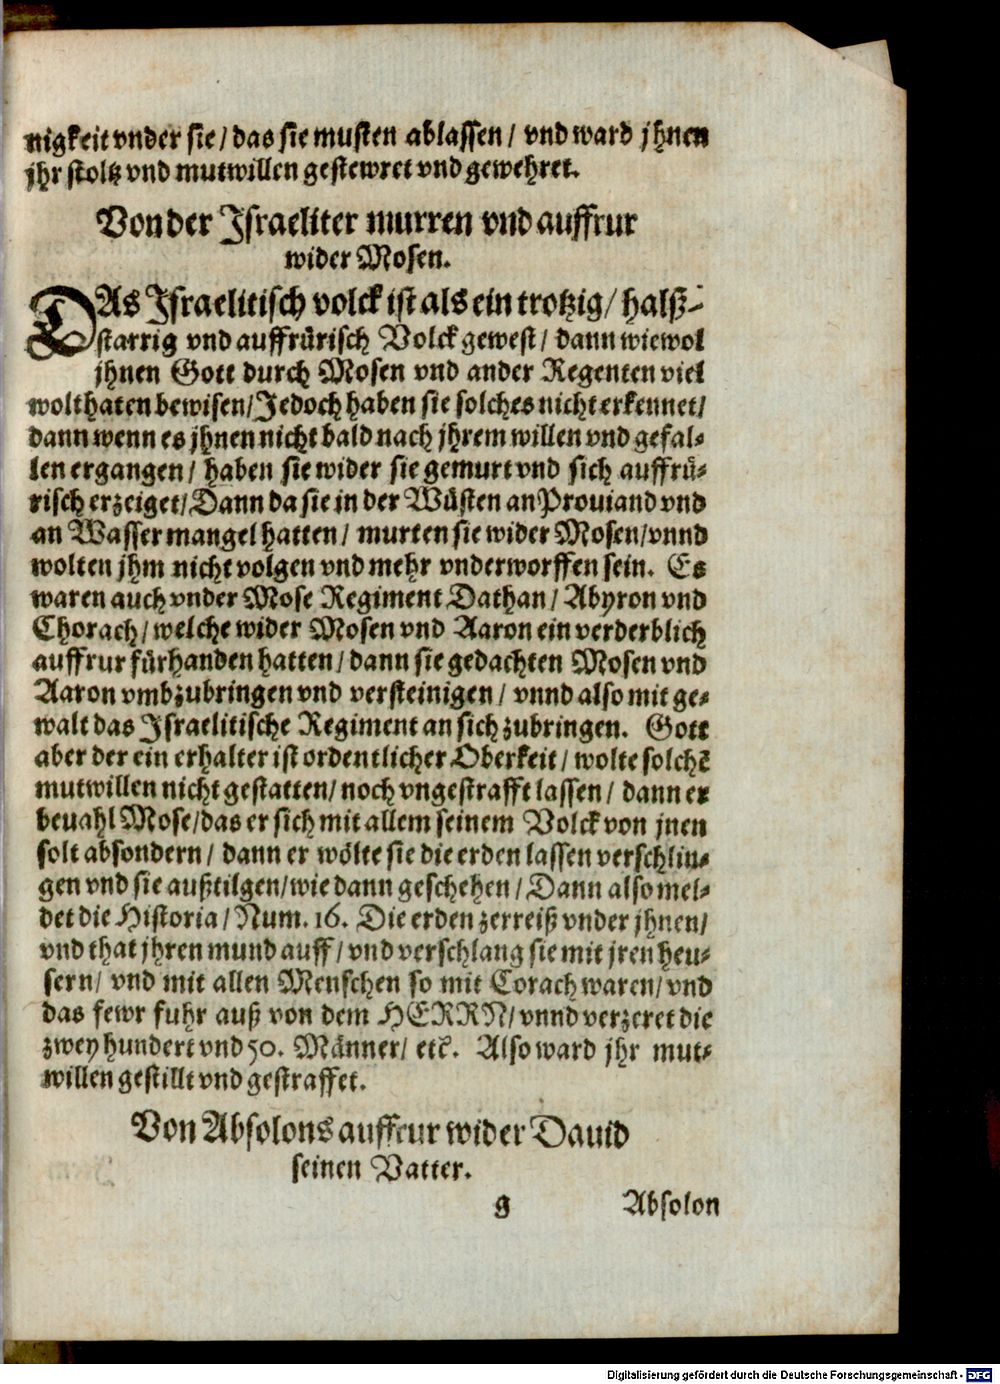 nigkeit vnder sie / das sie musten ablassen / vnd ward jhnen
jhr stoltz vnd mutwillen gestewret vnd gewehret.
Von der Israeliter murren vnd auffrur
wider Mosen.
DAs Israelitisch volck ist als ein trotzig / halß-
starrig vnd auffrürisch Volck gewest / dann wiewol
jhnen Gott durch Mosen vnd ander Regenten viel
wolthaten bewisen / Jedoch haben sie solches nicht erkennet /
dann wenn es jhnen nicht bald nach jhrem willen vnd gefal-
len ergangen / haben sie wider sie gemurt vnd sich auffrü-
risch erzeiget / Dann da sie in der Wüsten an Prouiand vnd
an Wasser mangel hatten / murten sie wider Mosen / vnnd
wolten jhm nicht volgen vnd mehr vnderworffen sein. Es
waren auch vnder Mose Regiment Dathan / Abyron vnd
Chorach / welche wider Mosen vnd Aaron ein verderblich
auffrur fürhanden hatten / dann sie gedachten Mosen vnd
Aaron vmbzubringen vnd versteinigen / vnnd also mit ge-
walt das Israelitische Regiment an sich zubringen. Gott
aber der ein erhalter ist ordentlicher Oberkeit / wolte solchē
mutwillen nicht gestatten / noch vngestrafft lassen / dann er
beuahl Mose / das er sich mit allem seinem Volck von jnen
solt absondern / dann er wölte sie die erden lassen verschlin-
gen vnd sie außtilgen / wie dann geschehen / Dann also mel-
det die Historia / Num. 16. Die erden zerreiß vnder jhnen /
vnd that jhren mund auff / vnd verschlang sie mit jren heu-
sern / vnd mit allen Menschen so mit Corach waren / vnd
das fewr fuhr auß von dem HERRN / vnnd verzeret die
zwey hundert vnd 50. Männer / etc. Also ward jhr mut-
willen gestillt vnd gestraffet.
Von Absolons auffrur wider Dauid
seinen Vatter.
g Absolon
Digitalisierung gefördert durch die Deutsche Forschungsgemeinschaft - DFG